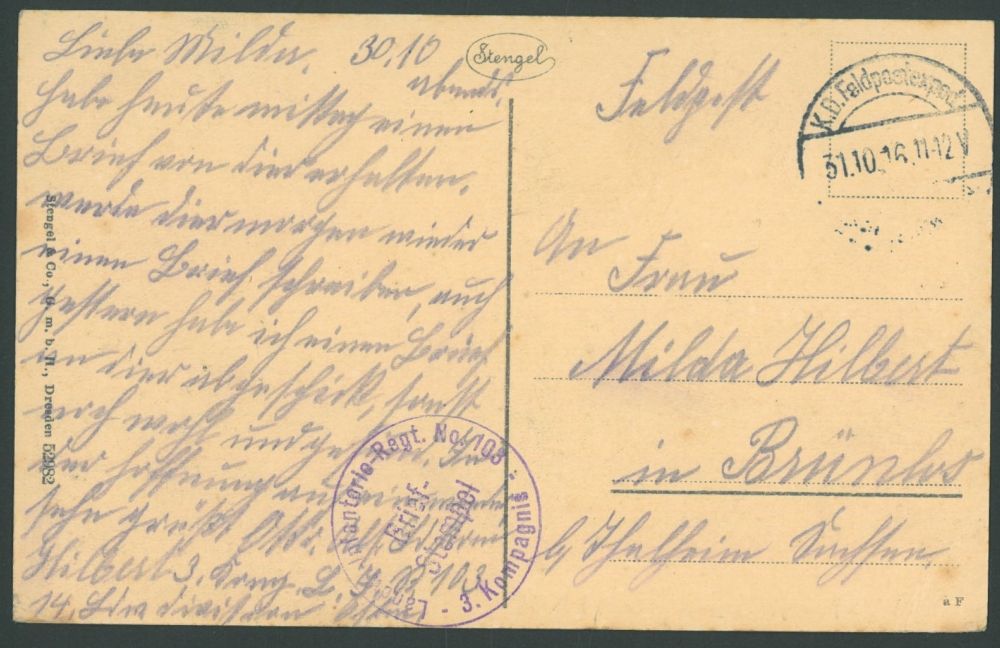 Liebe Milda. 30.10
abends.
Habe heute mittag einen
Brief von dier erhalten,
werde dier morgen wieder
einen Brief schreiben, auch
gestern habe ich einen Brief
an dier abgeschickt, sonst
noch wohl und gesund. In
der Hoffnung auf
sehn grüßt
Hilbert 3. Komp. L. I. R 103
14. Ldw division
Stengel
Feldpost
K.D.Feldpostexped.
31.10.16.11-12V
An
Frau
Milda Hilbert
in Brünlos
b/ Thalheim Sachsen.
Stengel & Co., G. m. b. H., Dresden 52982
Infanterie-Regt. No. 103
Brief-
Stempel
- 3. Kompagnie -
a F